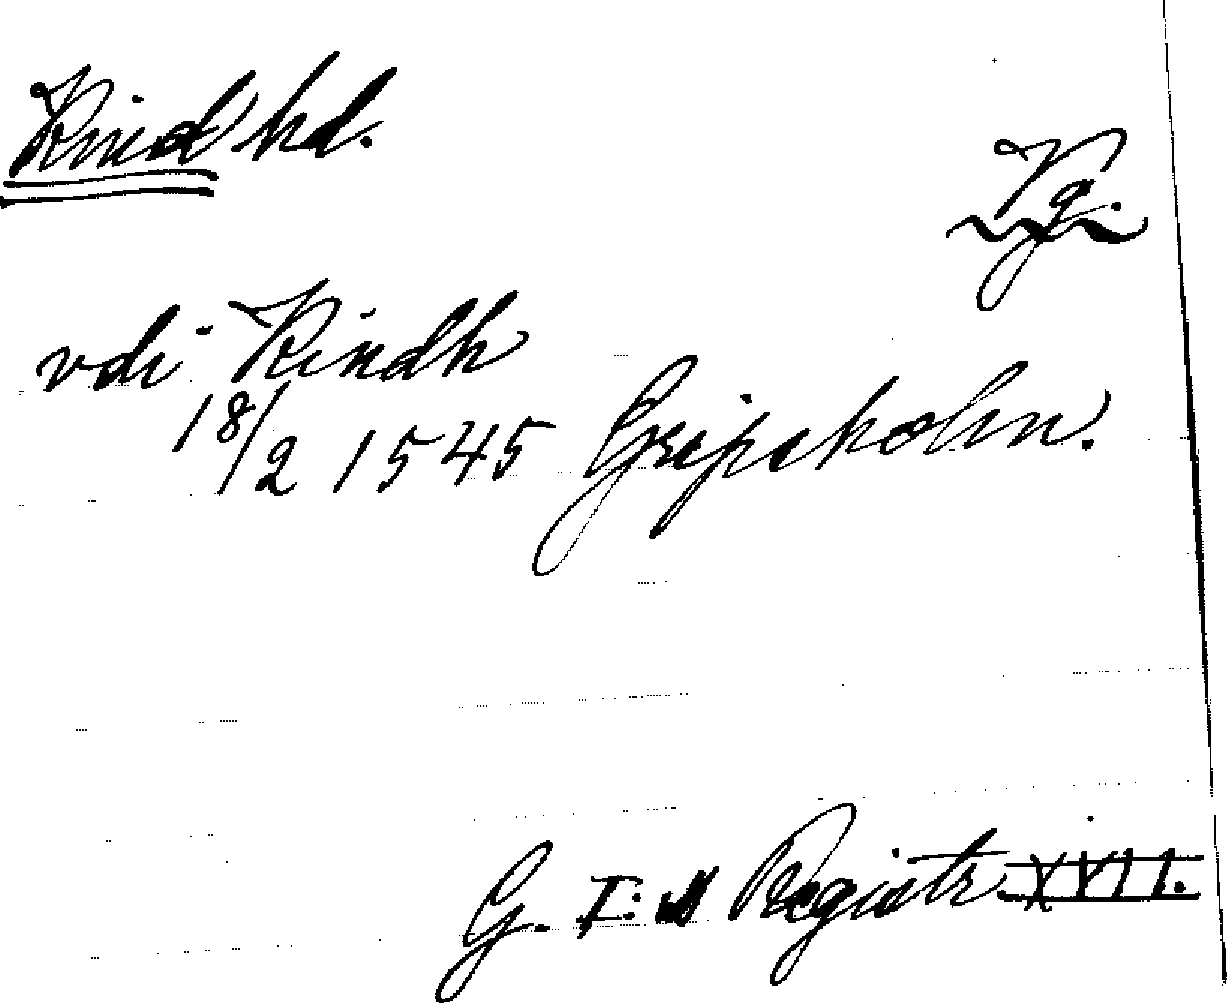 Kind hd.
Vg.
vdi Kindh
18/2 1545 Gripsholm.
G. I: s Registr XVII.